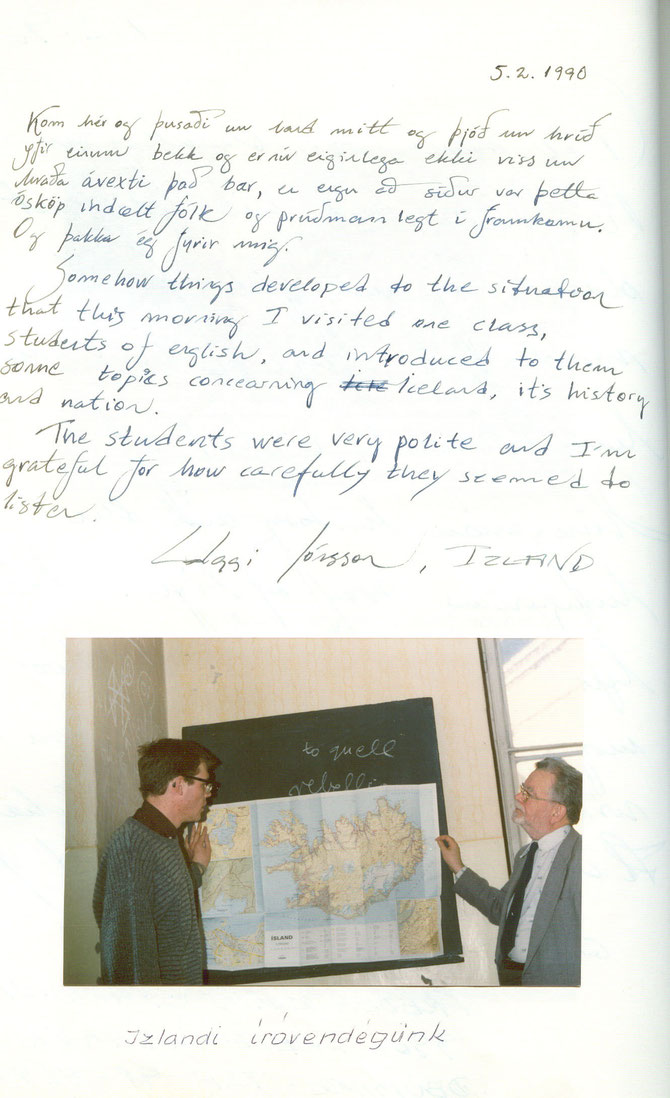 5.2.1990
Kom hér og þusaði um land mitt og þjóð um hríð
yfir einum bekk og er nú eiginlega ekki viss um
hvaða ávexti það bar, en eigu að síður var þetta
ósköp indælt fólk og prúðmannlegt í framkomu.
Og þakka ég fyrir mig.
Somehow things developed to the situation
that this morning I visited one class,
students of english, and introduced to them
some topics concearning Iceland, it's history
and nation.
The students were very polite and I'm
grateful for how carefully they seemed to
listen.
Jónsson, IZLAND
to quell
rebelli
ÍSLAND
Izlandi íróvendégünk